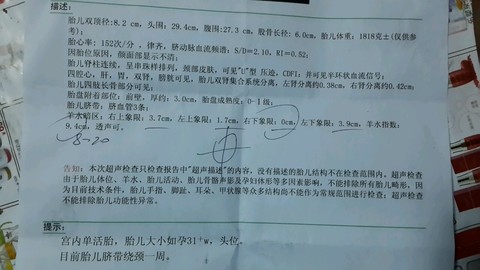 描述:
胎儿双顶径:8.2 cm, 头围: 29.4cm, 腹围:27.3 cm, 股骨长径: 6.0cm, 胎儿体重: 1818克±(仅供参
考);
胎心率: 152次/分 , 律齐, 脐动脉血流频谱: S/D=2.10, RI=0.52;
因胎位原因, 颜面部显示不清;
胎儿脊柱连续, 呈串珠样排列, 颈部皮肤, 可见"U"型 压迹, CDFI: 并可见半环状血流信号;
四腔心, 肝, 胃, 双肾, 膀胱可见, 胎儿双肾集合系统分离, 左肾分离约0.38cm, 右肾分离约0.42cm;
胎儿四肢长骨部分可见;
胎盘附着部位: 前壁, 厚约: 3.0cm, 胎盘成熟度: 0-Ⅰ级;
胎儿脐带: 脐血管3条;
羊水暗区: 右上象限: 3.7cm, 左上象限: 1.7cm, 右下象限: 0cm, 左下象限: 3.9cm, 羊水指数:
9.4cm, 透声可。
8-20
告知: 本次超声检查只检查报告中"超声描述"的内容, 没有描述的胎儿结构不在检查范围内。超声检查
由于胎儿体位、羊水、胎儿活动、胎儿骨骼声影及孕妇体形等多因素影响, 不能排除所有胎儿畸形, 因
为目前技术条件, 胎儿手指、脚趾、耳朵、甲状腺等众多结构尚不能作为常规范围进行检查; 超声检查
不能排除胎儿功能性异常。
提示:
宫内单活胎, 胎儿大小如孕31⁺w, 头位。
目前胎儿脐带绕颈一周。